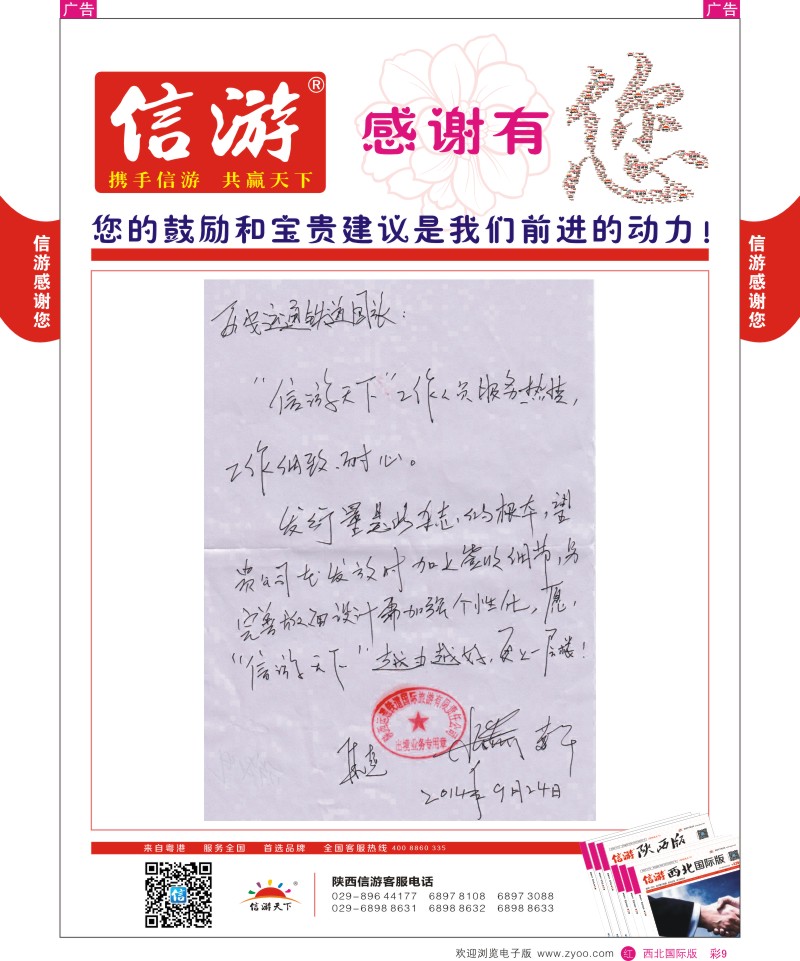 广告
广告
信游®
携手信游 共赢天下
感谢有
您
您的鼓励和宝贵建议是我们前进的动力！
信游感谢您
信游感谢您
"信游天下"工作人员服务热情，
工作细致、耐心。
发行量是此杂志的根本，望
贵公司在发放时加上签收细节，另
完善版面设计需加强个性化，愿，
"信游天下"越办越好，更上一层楼！
出境业务专用章
2014年9月24日
来自粤港 服务全国 首选品牌 全国客服热线 400 8860 335
信游
信游天下®
陕西信游客服电话
029-896 44177 6897 8108 6897 3088
029-6898 8631 6898 8632 6898 8633
信游 陕西版
信游 西北国际版
欢迎浏览电子版 www.zyoo.com 红 西北国际版 彩9